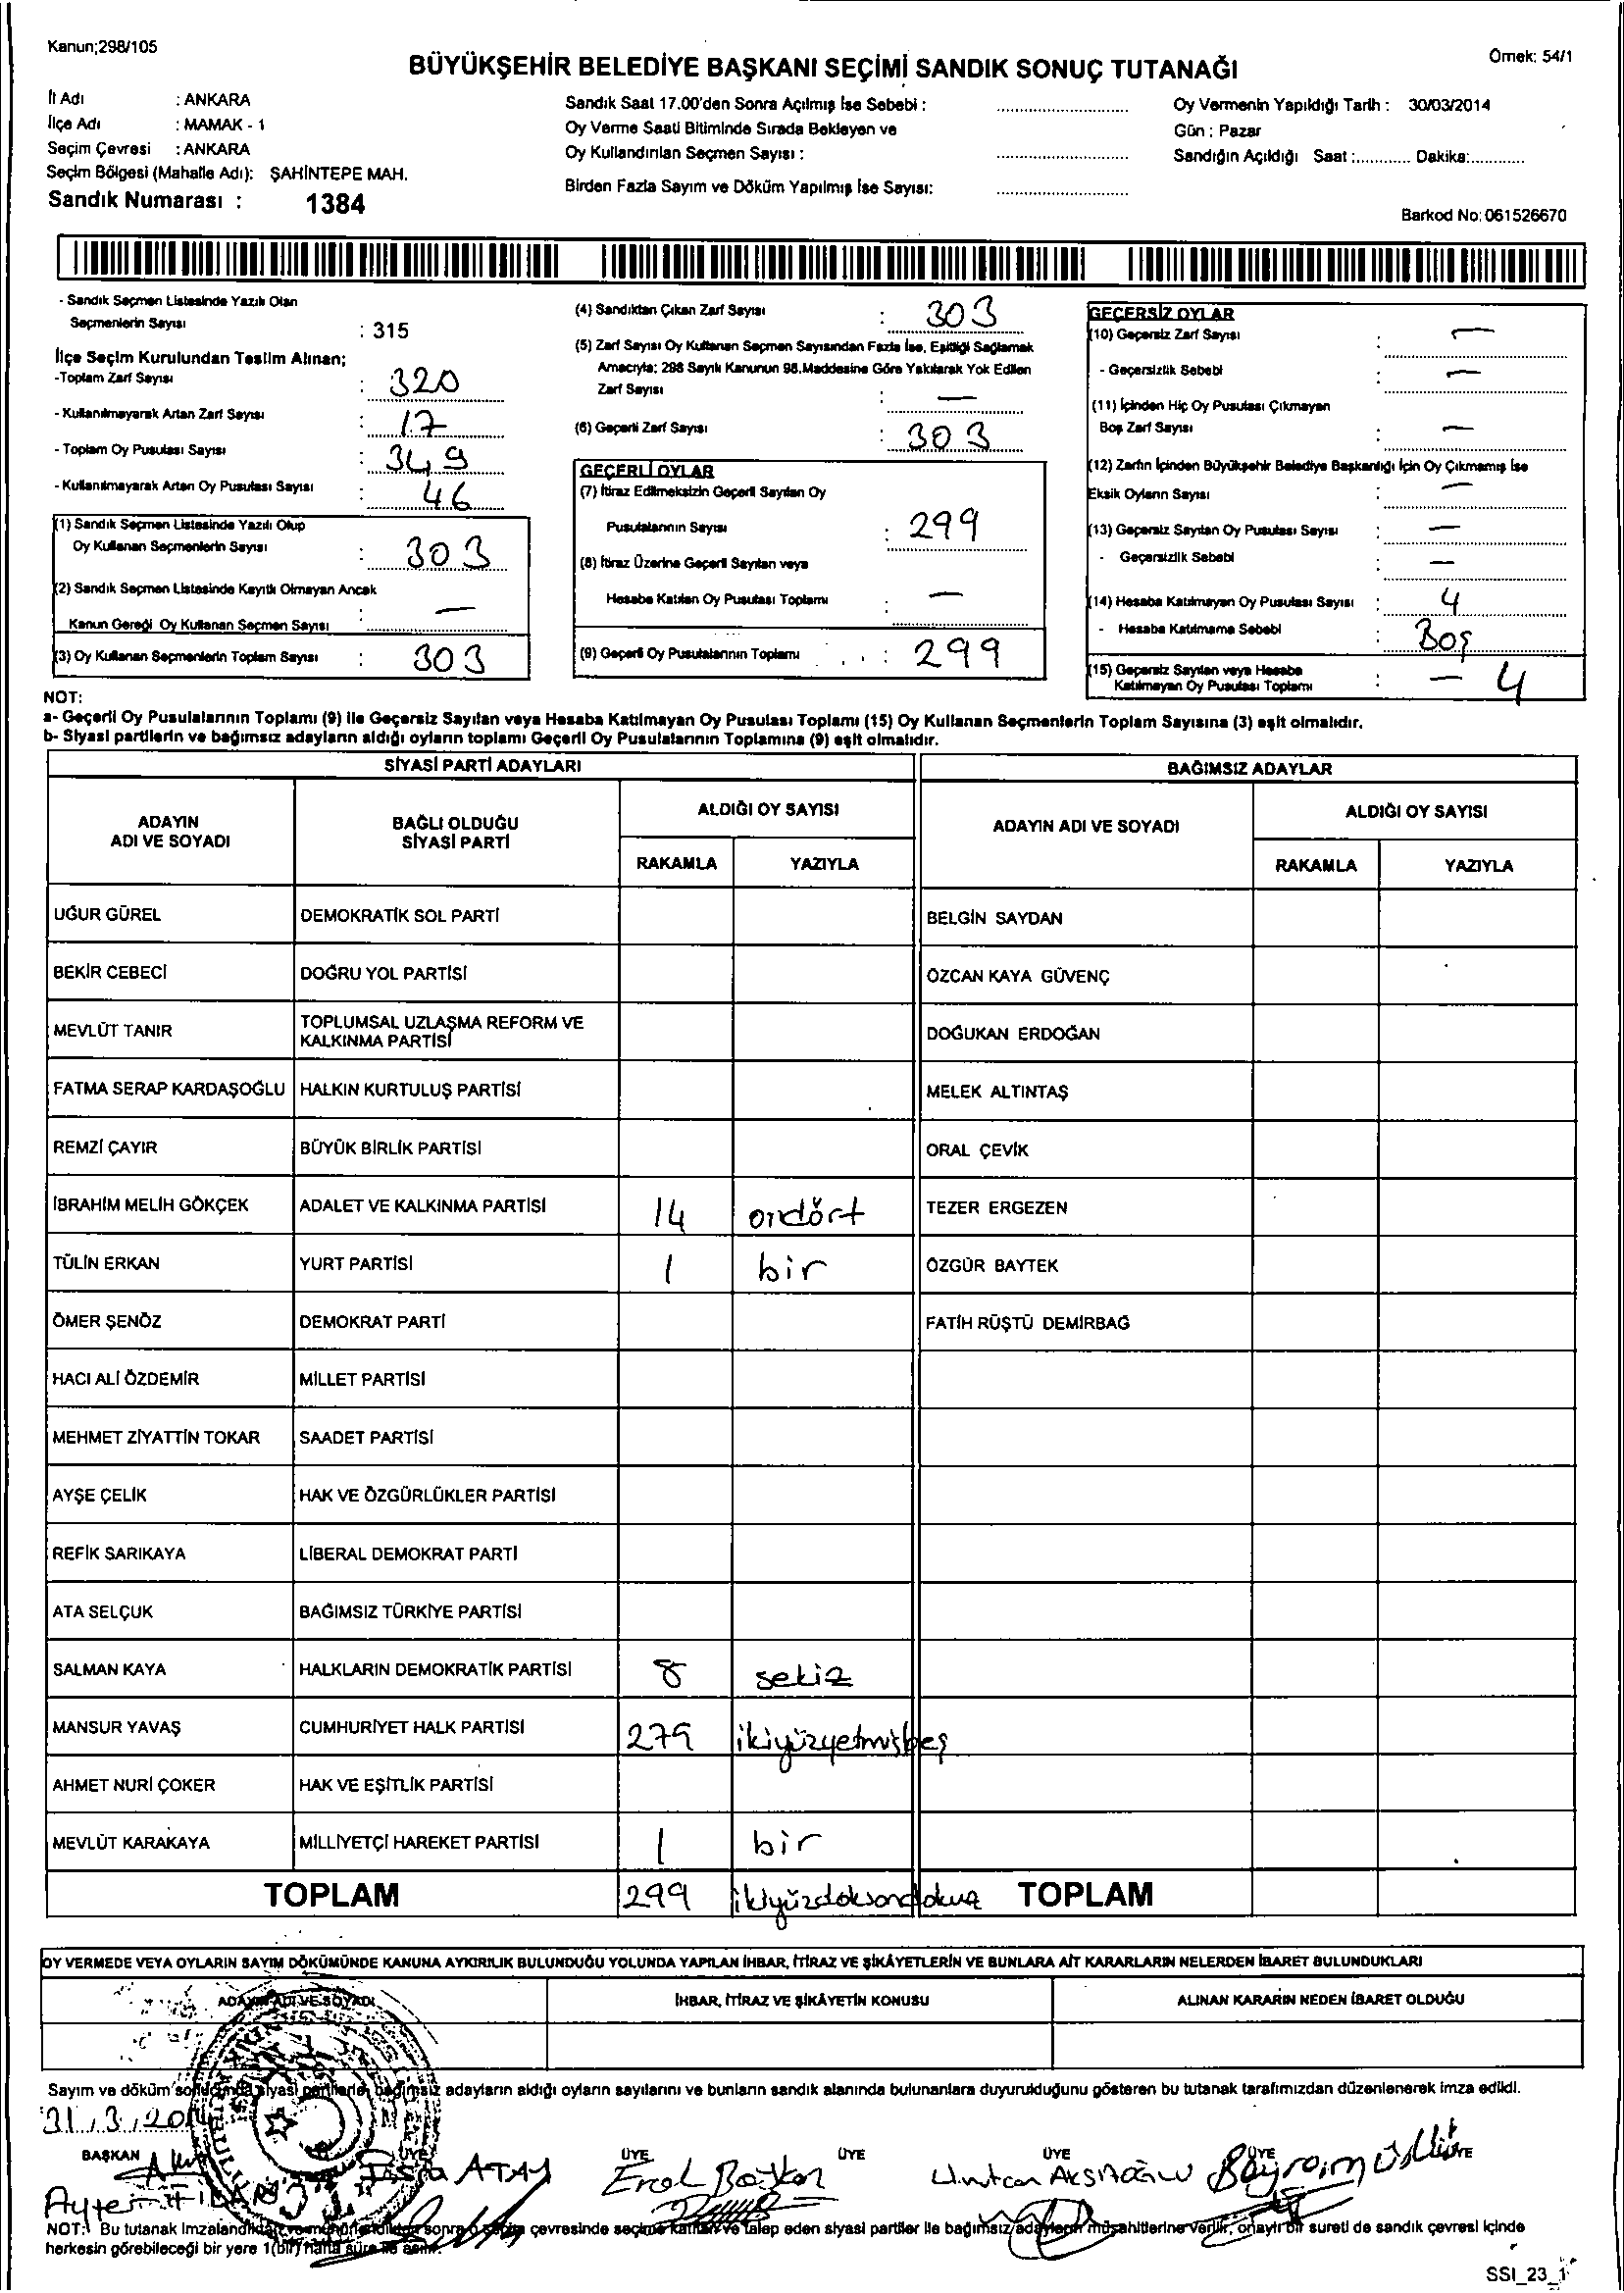 Kanun;298/105
Örnek: 54/1
BÜYÜKŞEHİR BELEDİYE BAŞKANI SEÇİMİ SANDIK SONUÇ TUTANAĞI
İl Adı : ANKARA
İlçe Adı : MAMAK - 1
Seçim Çevresi : ANKARA
Seçim Bölgesi (Mahalle Adı): ŞAHİNTEPE MAH.
Sandık Numarası : 1384
Sandık Saat 17.00'den Sonra Açılmış İse Sebebi :
Oy Verme Saati Bitiminde Sırada Bekleyen ve
Oy Kullandırılan Seçmen Sayısı :
Birden Fazla Sayım ve Döküm Yapılmış İse Sayısı:
Oy Vermenin Yapıldığı Tarih : 30/03/2014
Gün : Pazar
Sandığın Açıldığı Saat :............ Dakika:............
Barkod No: 061526670
- Sandık Seçmen Listesinde Yazılı Olan
Seçmenlerin Sayısı : 315
İlçe Seçim Kurulundan Teslim Alınan;
-Toplam Zarf Sayısı : 320
- Kullanılmayarak Artan Zarf Sayısı : 17
- Toplam Oy Pusulası Sayısı : 349
- Kullanılmayarak Artan Oy Pusulası Sayısı : 46
(1) Sandık Seçmen Listesinde Yazılı Olup
Oy Kullanan Seçmenlerin Sayısı : 303
(2) Sandık Seçmen Listesinde Kayıtlı Olmayan Ancak
Kanun Gereği Oy Kullanan Seçmen Sayısı : —
(3) Oy Kullanan Seçmenlerin Toplam Sayısı : 303
(4) Sandıktan Çıkan Zarf Sayısı : 303
(5) Zarf Sayısı Oy Kullanan Seçmen Sayısından Fazla İse, Eşitliği Sağlamak
Amacıyla; 298 Sayılı Kanunun 98.Maddesine Göre Yakılarak Yok Edilen
Zarf Sayısı : —
(6) Geçerli Zarf Sayısı : 303
GEÇERLİ OYLAR
(7) İtiraz Edilmeksizin Geçerli Sayılan Oy
Pusulalarının Sayısı : 299
(8) İtiraz Üzerine Geçerli Sayılan veya
Hesaba Katılan Oy Pusulası Toplamı : —
(9) Geçerli Oy Pusulalarının Toplamı : 299
GEÇERSİZ OYLAR
(10) Geçersiz Zarf Sayısı : —
- Geçersizlik Sebebi : —
(11) İçinden Hiç Oy Pusulası Çıkmayan
Boş Zarf Sayısı : —
(12) Zarfın İçinden Büyükşehir Belediye Başkanlığı İçin Oy Çıkmamış İse
Eksik Oyların Sayısı : —
(13) Geçersiz Sayılan Oy Pusulası Sayısı : —
- Geçersizlik Sebebi : —
(14) Hesaba Katılmayan Oy Pusulası Sayısı : 4
- Hesaba Katılmama Sebebi : Boş
(15) Geçersiz Sayılan veya Hesaba
Katılmayan Oy Pusulası Toplamı : — 4
NOT:
a- Geçerli Oy Pusulalarının Toplamı (9) ile Geçersiz Sayılan veya Hesaba Katılmayan Oy Pusulası Toplamı (15) Oy Kullanan Seçmenlerin Toplam Sayısına (3) eşit olmalıdır.
b- Siyasi partilerin ve bağımsız adayların aldığı oyların toplamı Geçerli Oy Pusulalarının Toplamına (9) eşit olmalıdır.
SİYASİ PARTİ ADAYLARI BAĞIMSIZ ADAYLAR
ADAYIN ADI VE SOYADI BAĞLI OLDUĞU SİYASİ PARTİ ALDIĞI OY SAYISI ADAYIN ADI VE SOYADI ALDIĞI OY SAYISI
RAKAMLA YAZIYLA RAKAMLA YAZIYLA
UĞUR GÜREL DEMOKRATİK SOL PARTİ BELGİN SAYDAN
BEKİR CEBECİ DOĞRU YOL PARTİSİ ÖZCAN KAYA GÜVENÇ
MEVLÜT TANIR TOPLUMSAL UZLAŞMA REFORM VE KALKINMA PARTİSİ DOĞUKAN ERDOĞAN
FATMA SERAP KARDAŞOĞLU HALKIN KURTULUŞ PARTİSİ MELEK ALTINTAŞ
REMZİ ÇAYIR BÜYÜK BİRLİK PARTİSİ ORAL ÇEVİK
İBRAHİM MELİH GÖKÇEK ADALET VE KALKINMA PARTİSİ 14 ondört TEZER ERGEZEN
TÜLİN ERKAN YURT PARTİSİ 1 bir ÖZGÜR BAYTEK
ÖMER ŞENÖZ DEMOKRAT PARTİ FATİH RÜŞTÜ DEMİRBAĞ
HACI ALİ ÖZDEMİR MİLLET PARTİSİ
MEHMET ZİYATTİN TOKAR SAADET PARTİSİ
AYŞE ÇELİK HAK VE ÖZGÜRLÜKLER PARTİSİ
REFİK SARIKAYA LİBERAL DEMOKRAT PARTİ
ATA SELÇUK BAĞIMSIZ TÜRKİYE PARTİSİ
SALMAN KAYA HALKLARIN DEMOKRATİK PARTİSİ 8 sekiz
MANSUR YAVAŞ CUMHURİYET HALK PARTİSİ 279 ikiyüzyetmişbeş
AHMET NURİ ÇOKER HAK VE EŞİTLİK PARTİSİ
MEVLÜT KARAKAYA MİLLİYETÇİ HAREKET PARTİSİ 1 bir
TOPLAM 299 ikiyüzdoksandokuz TOPLAM
OY VERMEDE VEYA OYLARIN SAYIM DÖKÜMÜNDE KANUNA AYKIRILIK BULUNDUĞU YOLUNDA YAPILAN İHBAR, İTİRAZ VE ŞİKÂYETLERİN VE BUNLARA AİT KARARLARIN NELERDEN İBARET BULUNDUKLARI
ADAYIN ADI VE SOYADI İHBAR, İTİRAZ VE ŞİKÂYETİN KONUSU ALINAN KARARIN NEDEN İBARET OLDUĞU
Sayım ve döküm sonucunda siyasi partilerle, bağımsız adayların aldığı oyların sayılarını ve bunların sandık alanında bulunanlara duyurulduğunu gösteren bu tutanak tarafımızdan düzenlenerek imza edildi.
31/3/2014
BAŞKAN ÜYE ÜYE ÜYE ÜYE ÜYE ÜYE
ATAY Erol
NOT: Bu tutanak imzalandıktan ve mühürlendikten sonra o seçim çevresinde seçime katılan ve talep eden siyasi partiler ile bağımsız adayların müşahitlerine verilir, onaylı bir sureti de sandık çevresi içinde
herkesin görebileceği bir yere 1(bir) hafta süre ile asılır.
SSI_23_1